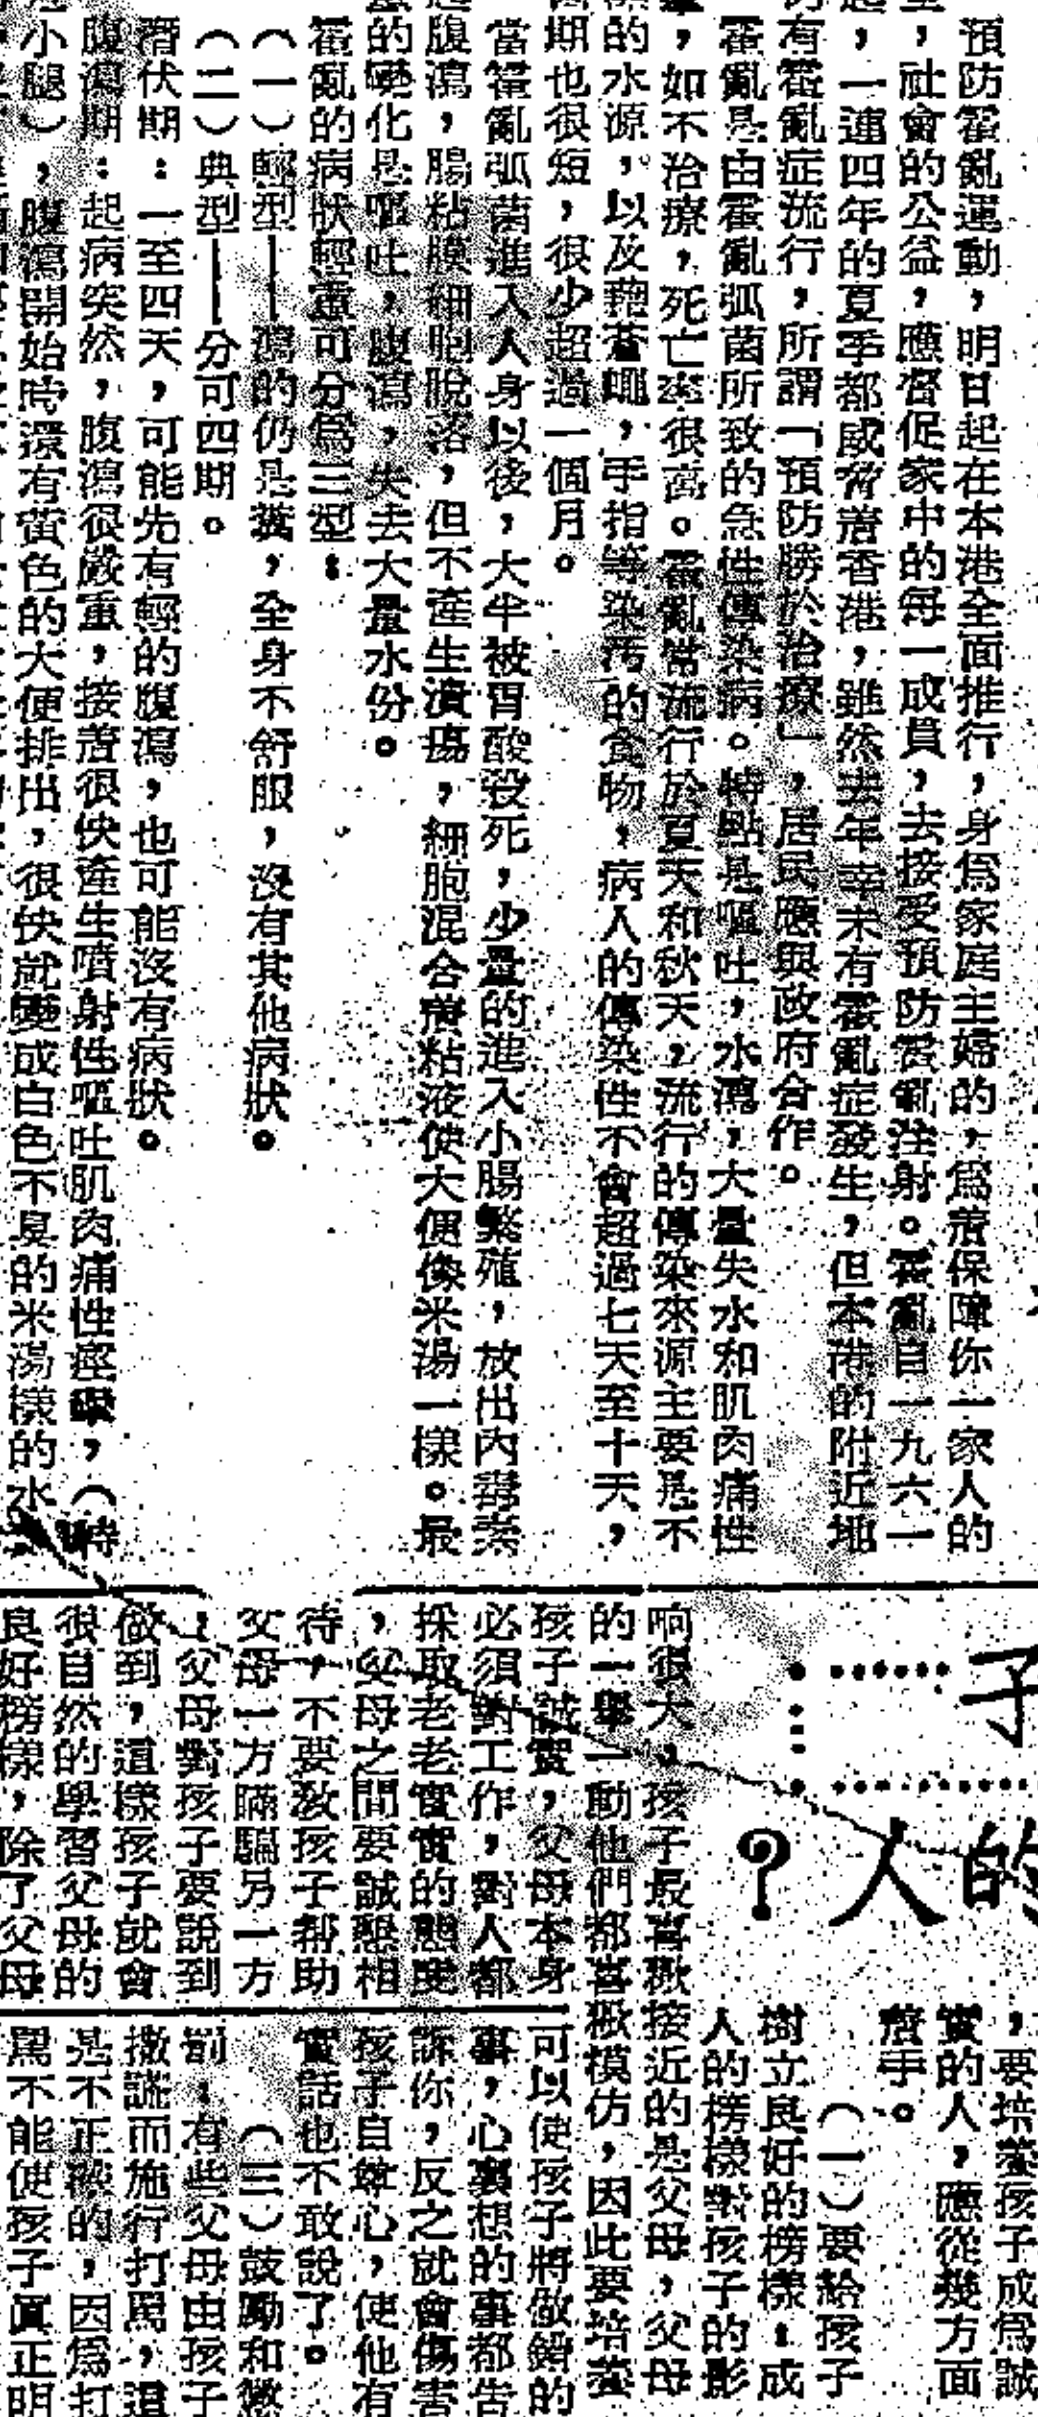 預防霍亂運動，明日起在本港全面推行，身爲家庭主婦的，爲着保障你一家人的
，社會的公益，應督促家中的每一成員，去接受預防霍亂注射。霍亂自一九六一
，一連四年的夏季都威脅着香港，雖然去年幸未有霍亂症發生，但本港的附近地
有霍亂症流行，所謂「預防勝於治療」，居民應與政府合作。
霍亂是由霍亂弧菌所致的急性傳染病。特點是嘔吐，水瀉，大量失水和肌肉痛性
，如不治療，死亡率很高。霍亂常流行於夏天和秋天，流行的傳染來源主要是不
的水源，以及藉蒼蠅，手指等染污的食物，病人的傳染性不會超過七天至十天，
期也很短，很少超過一個月。
當霍亂弧菌進入人身以後，大半被胃酸殺死，少量的進入小腸繁殖，放出內毒素
腹瀉，腸粘膜細胞脫落，但不產生潰瘍，細胞混合着粘液使大便像米湯一樣。最
的變化是嘔吐，腹瀉，失去大量水份。
霍亂的病狀輕重可分爲三型：
（一）輕型——瀉的仍是糞，全身不舒服，沒有其他病狀。
（二）典型——分可四期。
潛伏期：一至四天，可能先有輕的腹瀉，也可能沒有病狀。
腹瀉期：起病突然，腹瀉很嚴重，接着很快產生噴射性嘔吐肌肉痛性痙攣，（特
小腿），腹瀉開始時還有黃色的大便排出，很快就變成白色不臭的米湯樣的水
子
的人？
，要培養孩子成爲誠
實的人，應從幾方面
着手。
（一）要給孩子
樹立良好的榜樣：成
人的榜樣對孩子的影
响很大，孩子最喜歡接近的是父母，父母
的一舉一動他們都喜歡模仿，因此要培養
孩子誠實，父母本身
必須對工作，對人都
採取老老實實的態度
，父母之間要誠懇相
待，不要教孩子幫助
父母一方瞞騙另一方
，父母對孩子要說到
做到，這樣孩子就會
很自然的學習父母的
良好榜樣，除了父母
可以使孩子將做錯的
事，心裏想的事都告
訴你，反之就會傷害
孩子自尊心，使他有
實話也不敢說了。
（三）鼓勵和懲
罰：有些父母由孩子
撒謊而施行打罵，這
是不正確的，因爲打
罵不能使孩子眞正明